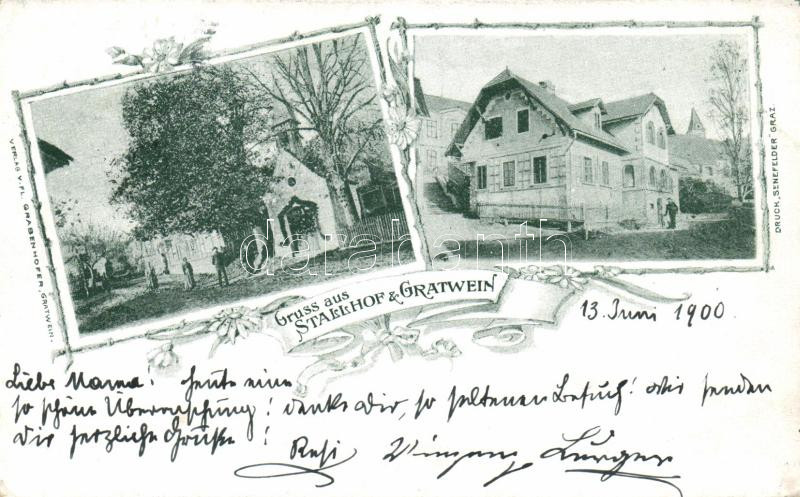 VERLAG V. FL. GRABENHOFER, GRATWEIN.
DRUCK „SENEFELDER" GRAZ.
darabanth
Gruss aus
STALLHOF & GRATWEIN
13. Juni 1900.
Liebe Mama! heute eine
so schöne Überraschung! denke dir, so seltenen Besuch! Wir senden
dir herzliche Grüße!
Resi